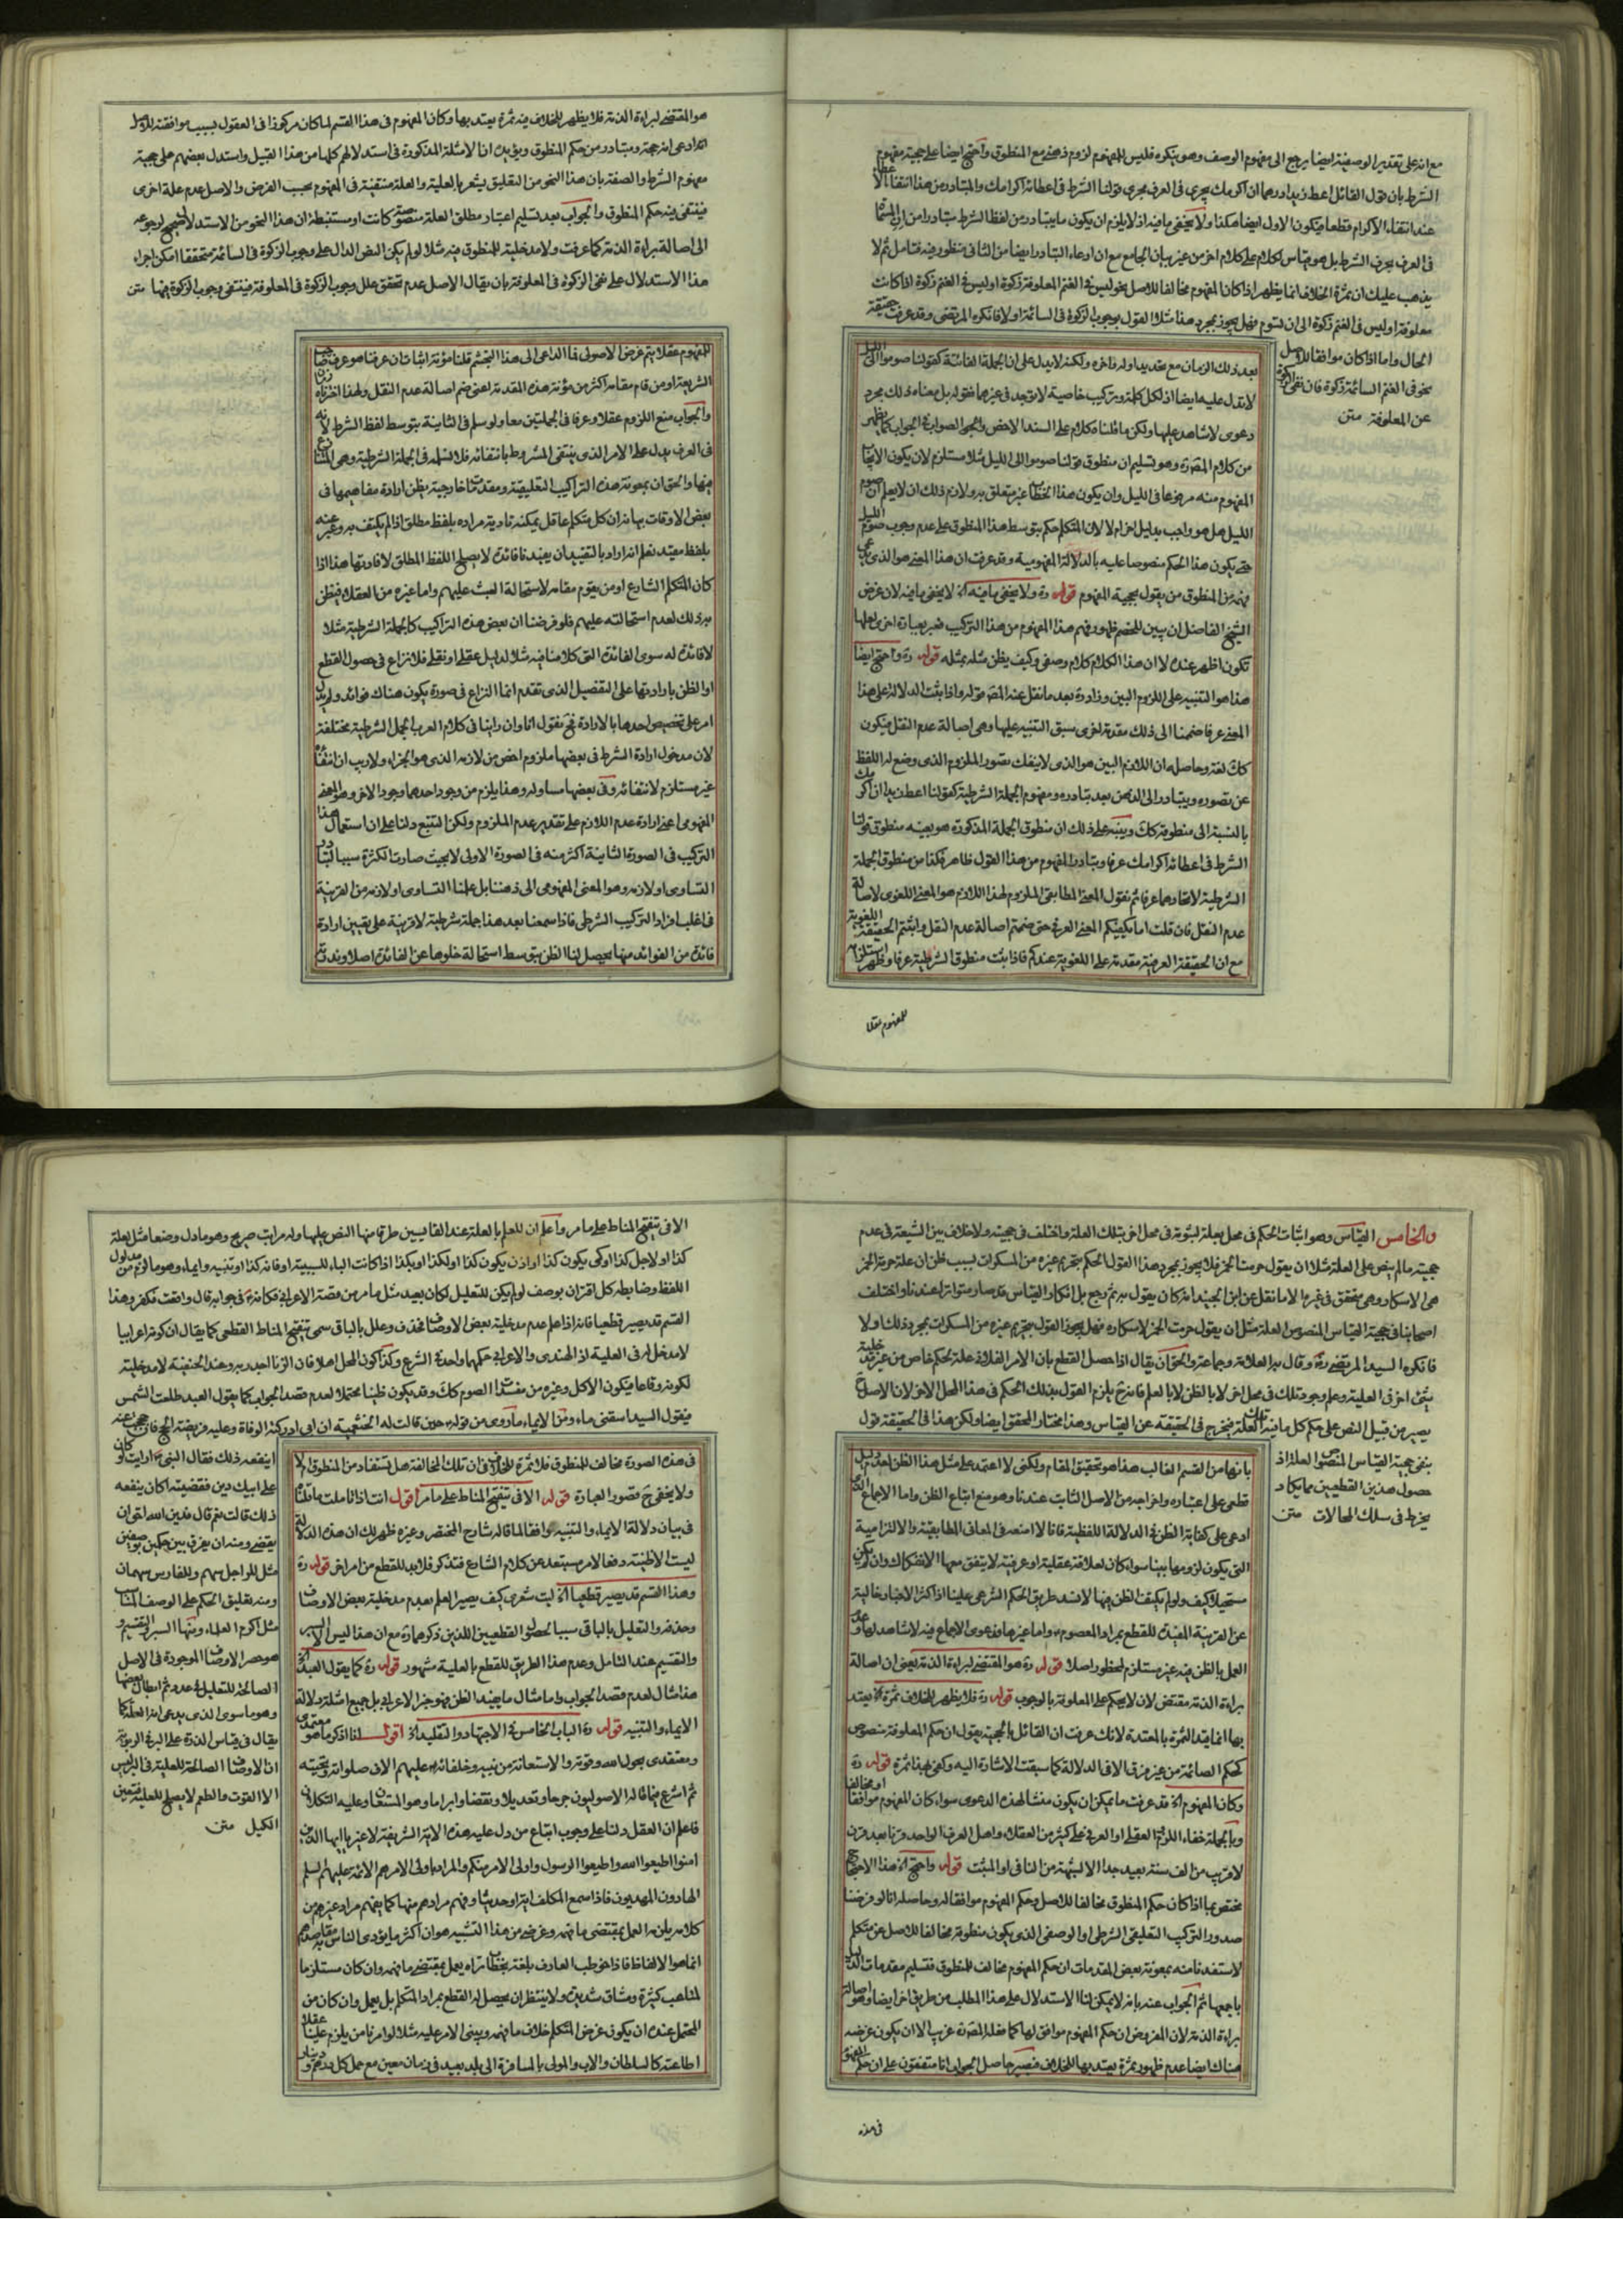 مع انه على تقدير الوصفية ايضا يرجع الى مفهوم الوصف وهو ينكره فليس للمفهوم لزوم ذهني مع المنطوق واحتج ايضا على حجية مفهوم
الشرط بان قول القائل اعط زيدا درهما ان اكرمك يجرى فى العرف مجرى قولنا الشرط فى اعطائه اكرامك والمتبادر من هذا انتفاء الاعطاء
عند انتفاء الاكرام قطعا فيكون الاول ايضا هكذا ولا يخفى ما فيه اذ لا يلزم ان يكون ما يتبادر من لفظ الشرط متبادرا من ان المسماة
فى العرف بحرف الشرط بل هو قياس لكلام على كلام اخر من غير بيان الجامع مع ان ادعاء التبادر ايضا من الثانى منظور فيه فتامل ثم لا
يذهب عليك ان ثمرة الخلاف انما يظهر اذا كان المفهوم مخالفا للاصل نحو ليس فى الغنم المعلوفة زكوة او ليس فى الغنم زكوة اذا كانت
معلوفة او ليس فى الغنم زكوة الى ان تسوم فهل يجوز بمجرد هذا مثلا القول بوجوب الزكوة فى السائمة اولا فانكره المرتضى وقد عرفت حقيقة
الحال واما اذا كان موافقا للاصل
نحو فى الغنم السائمة زكوة فان نفى الزكوة
عن المعلوفة متن
بعد ذلك الزمان مع تحديد اوله واخره ولكنه لا يدل على ان الجملة الغائية كقولنا صوموا الى الليل
لا تدل عليه ايضا اذ لكل كلمة وتركيب خاصية لا توجد فى غيرهما فقوله بل معناه ذلك مجرد
دعوى لا شاهد عليها ولكن ما قلناه كلام على السند الاخص والجواب الصواب فى الجواب كما يظهر
من كلام المصره وهو تسليم ان منطوق قولنا صوموا الى الليل مثلا مستلزم لان يكون الايجاب
المفهوم منه مرفوعا فى الليل وان يكون هذا الخطاب غير متعلق به ولازم ذلك ان لا يعلم ان صوم
الليل هل هو واجب بدليل اخر ام لا لان المتكلم حكم بتوسط هذا المنطوق على عدم وجوب صوم الليل
حتى يكون هذا الحكم منصوصا عليه بالدلالة المفهومية وقد عرفت ان هذا المعنى هو الذى يدعى
فهمه من المنطوق من يقول بحجية المفهوم قوله ره ولا يخفى ما فيه اه لا يخفى ما فيه لان غرض
الشيخ الفاضل ان يبين للخصم ظهور فهم هذا المفهوم من هذا التركيب فعبر بعبارة اخرى لعلها
تكون اظهر عنده لا ان هذا الكلام كلام وصفى وكيف يظن مثله بمثله قوله ره واحتج ايضا
هذا هو التنبيه على اللزوم البين وزاد ره بعد ما نقل عنه المصره قوله واذا ثبت الدلالة على هذا
المعنى عرفا ضممنا الى ذلك مقدمة اخرى سبق التنبيه عليها وهى اصالة عدم النقل فيكون
كك لغة وحاصله ان اللازم البين هو الذى لا ينفك تصور الملزوم الذى وضع له اللفظ
عن تصوره ويتبادر الى الذهن بعد تبادره ومفهوم الجملة الشرطية كقولنا اعط زيدا ان اكرمك
بالنسبة الى منطوقه كك وينبه على ذلك ان منطوق الجملة المذكورة هو بعينه منطوق قولنا
الشرط فى اعطائه اكرامك عرفا وتبادر المفهوم من هذا القول ظاهر فكذا من منطوق الجملة
الشرطية لاتحادهما عرفا ثم نقول المعنى المطابقى الملزوم لهذا اللازم هو المعنى اللغوى لاصالة
عدم النقل فان قلت اما يكفيكم المعنى العرفى حتى ضممتم اصالة عدم النقل واثبتم الحقيقة اللغوية
مع ان الحقيقة العرفية مقدمة على اللغوية عندكم فاذا ثبت منطوق الشرطية عرفا وظهر استلزامه
للمفهوم عقلا
هو المقتضى لبراءة الذمة فلا يظهر للخلاف فيه ثمرة يعتد بها وكان المفهوم فى هذا القسم لما كان مركوزا فى العقول بسبب موافقته للاصل
ادعى انه حجة ومتبادر من حكم المنطوق ويؤيده ان الامثلة المذكورة فى استدلالهم كلها من هذا القبيل واستدل بعضهم على حجية
مفهوم الشرط والصفة بان هذا النحو من التعليق يشعر بالعلية والعلة منتفية فى المفهوم بحسب الفرض والاصل عدم علة اخرى
فينتفى فيه حكم المنطوق والجواب بعد تسليم اعتبار مطلق العلة منصوصة كانت او مستنبطة ان هذا النحو من الاستدلال صحيح لرجوعه
الى اصالة براءة الذمة كما عرفت ولا مدخلية للمنطوق فيه مثلا لو لم يكن النص الدال على وجوب الزكوة فى السائمة متحققا امكن اجراء
هذا الاستدلال على نفى الزكوة فى المعلوفة بان يقال الاصل عدم تحقق علل وجوب الزكوة فى المعلوفة فينتفى وجوب الزكوة فيها متن
للمفهوم عقلا يتم غرض الاصولى فما الداعى الى هذا التجشم قلنا مؤنة اثبات ان عرفنا هو عرف صاحب
الشريعة او من قام مقامه اكثر من مؤنة هذه المقدمة اعنى ضم اصالة عدم النقل ولهذا اخرناه
والجواب منع اللزوم عقلا وعرفا فى الجملتين معا ولو سلم فى الثانية بتوسط لفظ الشرط لانه
فى العرف يدل على الامر الذى ينتفى المشروط بانتفائه فلا نسلمه فى الجملة الشرطية وهى المتنازع
فيها والحق ان بمعونة هذه التراكيب التعليقية ومقدمات خارجية يظن ارادة مفاهيمها فى
بعض الاوقات بيانه ان كل متكلم عاقل يمكنه تادية مراده بلفظ مطلق اذا لم يكتف به وعبر عنه
بلفظ مقيد نعلم انه اراد بالتقييد ان يفيدنا فائدة لا يصلح اللفظ المطلق لافادتها هذا اذا
كان المتكلم الشارع او من يقوم مقامه لاستحالة العبث عليهم واما غيره من العقلاء فيظن
به ذلك لعدم استحالته عليهم فلو فرضنا ان بعض هذه التراكيب كالجملة الشرطية مثلا
لا فائدة له سوى الفائدة التى كلامنا فيه مثلا لدليل عقلى او نقلى فلا نزاع فى حصول القطع
او الظن بارادتها على التفصيل الذى تقدم انما النزاع فى صورة يكون هناك فوائد ولم يدل
امر على تخصيص احدها بالارادة فح نقول انا وان راينا فى كلام العرب الجمل الشرطية مختلفة
لان مدخول اداة الشرط فى بعضها ملزوم اخص من لازمه الذى هو الجزاء ولا ريب ان انتفائه
غير مستلزم لانتفائه وفى بعضها مساو له وهذا يلزم من وجود احدهما وجود الاخر وهو المعنى
المفهومى اعنى ارادة عدم اللازم على تقدير عدم الملزوم ولكن التتبع دلنا على ان استعمال هذا
التركيب فى الصورة الثانية اكثر منه فى الصورة الاولى لا بحيث صارت الكثرة سببا لتبادر
التساوى او لازمه وهو المعنى المفهومى الى ذهننا بل علمنا التساوى او لازمه من القرينة
فى اغلب افراد التركيب الشرطى فاذا سمعنا بعد هذا جملة شرطية لا قرينة على تعيين ارادة
فائدة من الفوائد منها يحصل لنا الظن بتوسط استحالة خلوها عن الفائدة اصلا وندرة
والخامس القياس وهو اثبات الحكم فى محل بعلة لثبوته فى محل اخر بتلك العلة واختلف فى حجيته ولا خلاف بين الشيعة فى عدم
حجيته ما لم ينص على العلة مثلا ان يقول حرمت الخمر فلا يجوز بمجرد هذا القول الحكم بتحريم غيره من المسكرات بسبب ظن ان علة حرمة الخمر
هى الاسكار وهى متحقق فى غيره الا ما نقل عن ابن الجنيد انه كان يقول به ثم رجع بل انكار القياس قد صار متواترا عندنا واختلف
اصحابنا فى حجية القياس المنصوص العلة مثل ان يقول حرمت الخمر لاسكاره فهل يجوز القول بتحريم غيره من المسكرات بمجرد ذلك اولا
فانكره السيد المرتضى ره وقال به العلامة وجماعة والحق ان يقال اذا حصل القطع بان الامر الفلانى علة لحكم خاص من غير مدخلية
شئ اخر فى العلية وعلم وجود تلك فى محل اخر لا بالظن بل بالعلم فانه ح يلزم القول بذلك الحكم فى هذا المحل الاخر لان الاصل ح
يصير من قبيل النص على حكم كل ما فيه تلك العلة فيخرج فى الحقيقة عن القياس وهذا مختار المحقق ايضا ولكن هذا فى الحقيقة قول
بنفى حجية القياس المنصوص العلة اذ
حصول هذين القطعيين مما يكاد
ينخرط فى سلك المحالات متن
بانها من القسم الغالب هذا هو تحقيق المقام ولكنى لا اعتمد على مثل هذا الظن لعدم دليل
قطعى على اعتباره واخراجه من الاصل الثابت عندنا وهو منع اتباع الظن واما الاجماع الذى
ادعى على كفاية الظن فى الدلالة اللفظية فانا لا امنعه فى المعانى المطابقية والالتزامية
التى يكون لزومها بينا سواء كان لعلاقة عقلية او عرفية لا يتفق معها الانفكاك وان لم يكن
مستحيلا كيف ولو لم يكتف الظن فيها لانسد طريق الحكم الشرعى علينا اذ اكثر الاخبار خالية
عن القرينة المفيدة للقطع بمراد المعصوم واما غيرها فدعوى الاجماع فيه لا شاهد لها وعدم
العمل بالظن فيه غير مستلزم لمحظور اصلا قوله ره هو المقتضى لبراءة الذمة يعنى ان اصالة
براءة الذمة مقتض لان لا يحكم على المعلوفة بالوجوب قوله ره فلا يظهر للخلاف ثمرة اه يعتد
بها انما قيد الثمرة بالمعتدة لانك عرفت ان القائل بالحجية يقول ان حكم المعلوفة منصوص
كحكم الصائمة من غير فرق الا فى الدلالة كما سبقت الاشارة اليه وكفى بهذا ثمرة قوله ره
وكان المفهوم اه قد عرفت ما يمكن ان يكون منشأ لهذه الدعوى سواء كان المفهوم موافقا او مخالفا
وبالجملة خفاء اللزوم العقلى او العرفى على كثير من العقلاء واهل العرف الواحد قرنا بعد قرن
لا قريب من الف سنة بعيد جدا الا لشبهة من النافى او المثبت قوله واحتج اه هذا الاحتجاج
مختص بما اذا كان حكم المنطوق مخالفا للاصل وحكم المفهوم موافقا له وحاصله انا لو فرضنا
صدور التركيب التعليقى الشرطى او الوصفى الذى يكون منطوقه مخالفا للاصل عن متكلم
لاستفدنا منه بمعونة بعض المقدمات ان حكم المفهوم مخالف للمنطوق فتسليم مقدمات الدليل
باجمعها ثم الجواب عنه بانه لا يمكن لنا الاستدلال على هذا المطلب من طريق اخر ايضا وهو اصالة
براءة الذمة لان المفروض ان حكم المفهوم موافق لها كما فعله المصره غريب الا ان يكون غرضه
هناك ايضا عدم ظهور ثمرة يعتد بها للخلاف فيصير حاصل الجواب انا متفقون على ان حكم المفهوم
فى هذه
الا فى تنقيح المناط على ما مر واعلم ان للعلم بالعلة عند القايسين طرقا منها النص عليها وله مراتب صريح وهو ما دل وضعا مثل لعلة
كذا او لاجل كذا او كى يكون كذا او اذن يكون كذا او لكذا او بكذا اذا كانت الباء للسببية او فانه كذا او تنبيه وايماء وهو ما لزم من مدلول
اللفظ وضابطه كل اقتران بوصف لو لم يكن للتعليل لكان بعيد مثل ما مر من قصة الاعرابى فكانه فى جوابه قال واقعت فكفر وهذا
القسم قد يصير قطعيا فانه اذا علم عدم مدخلية بعض الاوصاف فحذف وعلل بالباقى سمى تنقيح المناط القطعى كما يقال ان كونه اعرابيا
لا مدخل له فى العلية اذ الهندى والاعرابى حكمهما واحد فى الشرع وكذا كون المحل اهلا فان الزنا اجدر به وعند الحنفية لا مدخلية
لكونه وقاعا فيكون الاكل وغيره من مفسدات الصوم كك وقد يكون ظنيا محتملا لعدم قصد الجواب كما يقول العبد طلعت الشمس
فيقول السيد اسقنى ماء ومن الايماء ما روى من قوله حين قالت له الخثعمية ان ابى ادركته الوفاة وعليه فريضة الحج فان حججت عنه
اينفعه ذلك فقال النبى ص ارايت لو كان
على ابيك دين فقضيته اكان ينفعه
ذلك قالت نعم قال فدين الله احق ان
يقضى ومنه ان يفرق بين حكمين بوصفين
مثل للراجل سهم وللفارس سهمان
ومنه تعليق الحكم على الوصف المناسب
مثل اكرم العلماء ومنها السبر والتقسيم و
هو حصر الاوصاف الموجودة فى الاصل
الصالحة للتعليل فى عدد ثم ابطال بعضها
وهو ما سوى الذى يدعى انه العلة كما
يقال فى قياس الذرة على البر فى الربوية
اذ الاوصاف الصالحة للعلية فى البر ليس
الا القوت والطعم لا يصلح للعلية فتعين
الكيل متن
فى هذه الصورة مخالف للمنطوق فلا ثمرة للخلاف فى ان تلك المخالفة هل تستفاد من المنطوق ام لا
ولا يخفى ح قصور العبارة قوله الا فى تنقيح المناط على ما مر اقول انت اذا تاملت ما قلناه
فى بيان دلالة الايماء والتنبيه وافقا لما قاله شارح المختصر وغيره ظهر لك ان هذه الدلالة
ليست الا ظنية دفعا لامر مستبعد عن كلام الشارع فتذكر فلا بد للقطع من امر اخر قوله ره
وهذا القسم قد يصير قطعيا اه ليت شعرى كيف يصير العلم بعدم مدخلية بعض الاوصاف
وحذفه والتعليل بالباقى سببا لحصول القطعيين اللذين ذكرهما ره مع ان هذا ليس الا السبر
والتقسيم عند التامل وعدم هذا الطريق للقطع بالعلية مشهور قوله ره كما يقول العبد اه
هذا مثال لعدم قصد الجواب واما مثال ما يفيد الظن فهو خبر الاعرابى بل جميع امثلة دلالة
الايماء والتنبيه قوله ره الباب الخامس فى الاجتهاد والتقليد اه اقول لنا اذكر ما هو معتمدى
ومعتقدى بحول الله وقوته والاستعانة من نبيه وخلفائه عليهم الاف صلواته وتحيته
ثم اشرع فيما قاله الاصوليون جرحا وتعديلا ونقضا وابراما وهو المستعان وعليه التكلان
فاعلم ان العقل دلنا على وجوب اتباع من دل عليه هذه الاية الشريفة لا غير يا ايها الذين
امنوا اطيعوا الله واطيعوا الرسول واولى الامر منكم والمراد باولى الامر هم الائمة عليهم السلم
الهادون المهديون فاذا سمع المكلف اية او حديثا وفهم مرادهم منها كما يفهم مراد غيرهم من
كلامه يلزمه العمل بمقتضى ما فهمه وغرضى من هذا التشبيه هو ان اكثر ما يؤدى الناس به مقاصدهم
انما هو الالفاظ فاذا خوطب العارف بلغة بخطاب تراه يعمل بمقتضى ما فهمه وان كان مستلزما
لمتاعب كثيرة ومشاق شديدة ولا ينتظر ان يحصل له القطع بمراد المتكلم بل يعمل وان كان من
المحتمل عنده ان يكون غرض المتكلم خلاف ما فهمه ويبنى الامر عليه مثلا لو امرنا من يلزم علينا عقلا
اطاعته كالسلطان والاب والمولى بالمسافرة الى بلد بعيد فى زمان معين مع حمل كل درهم و دينار